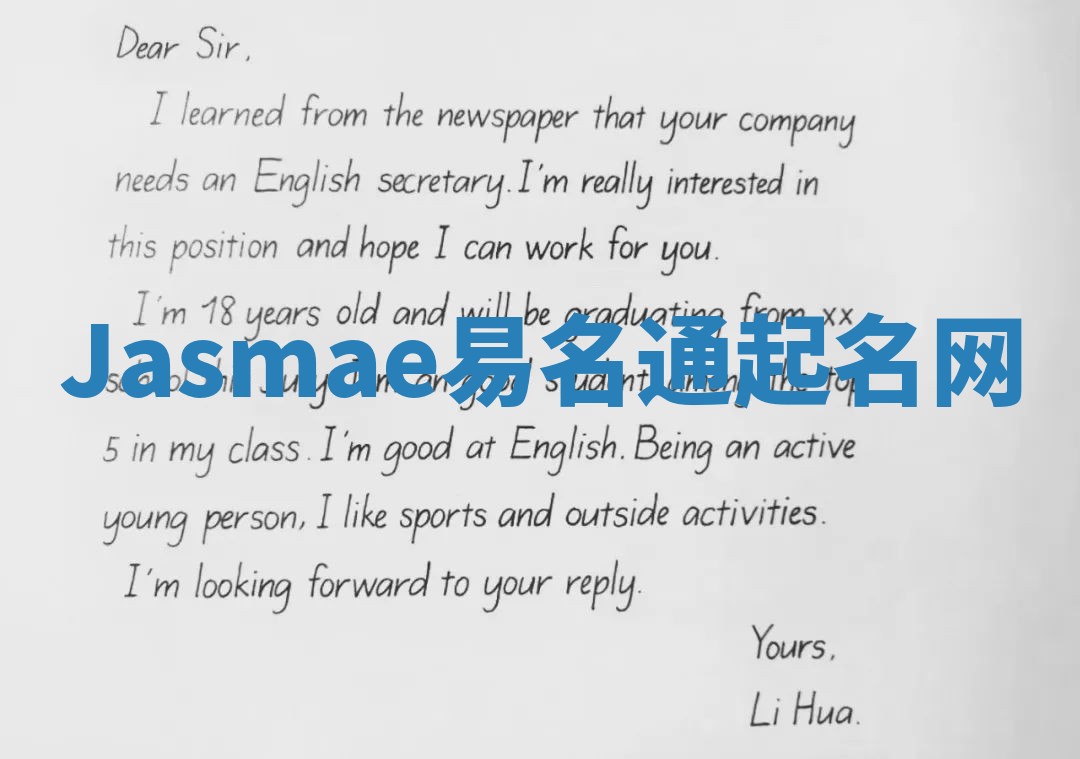 Dear Sir,
I learned from the newspaper that your company
needs an English secretary. I'm really interested in
this position and hope I can work for you.
I'm 18 years old and will be graduating from xx
Jasmae易名通起名网
school in July. I'm an good student among the top
5 in my class. I'm good at English. Being an active
young person, I like sports and outside activities.
I'm looking forward to your reply.
Yours,
Li Hua.